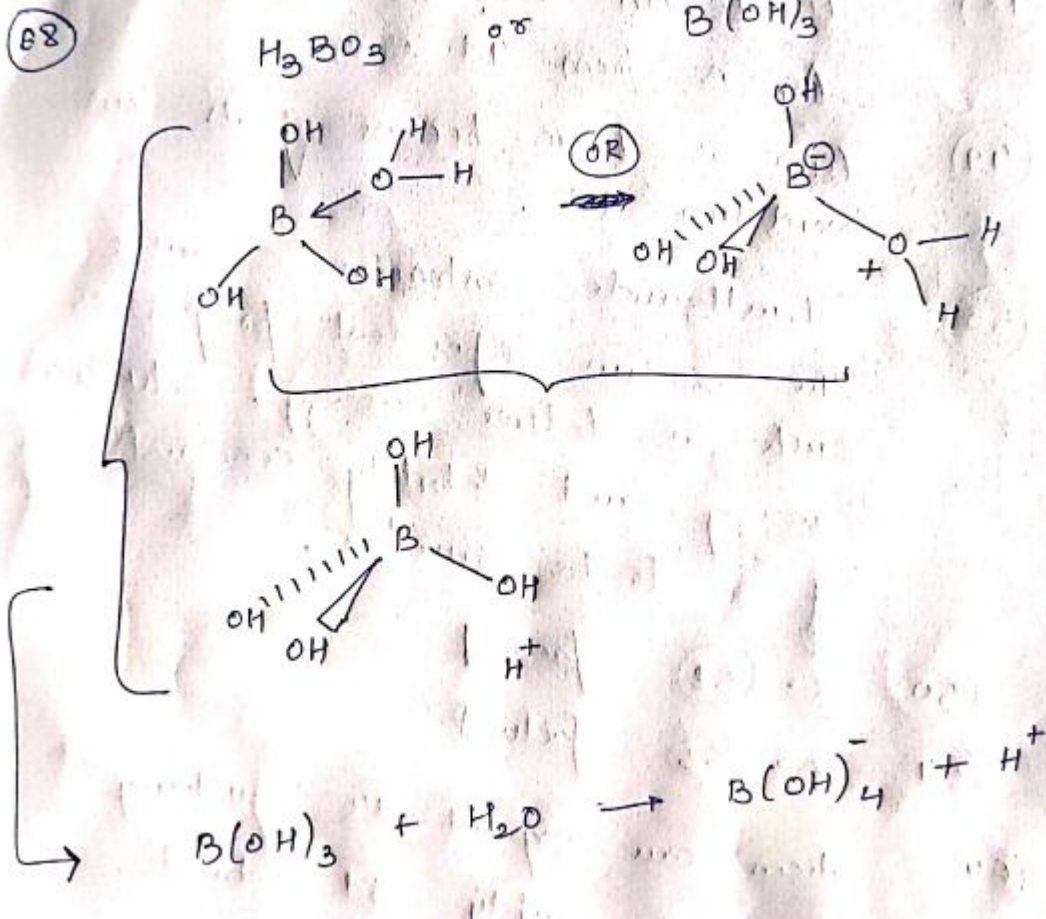 68
H₃BO₃ or B(OH)₃
OH H
B ← O — H
OH OH
OR
OH
B⊖
OH OH O — H
+
H
OH
B
OH OH OH
H⁺
B(OH)₃ + H₂O → B(OH)₄⁻ + H⁺